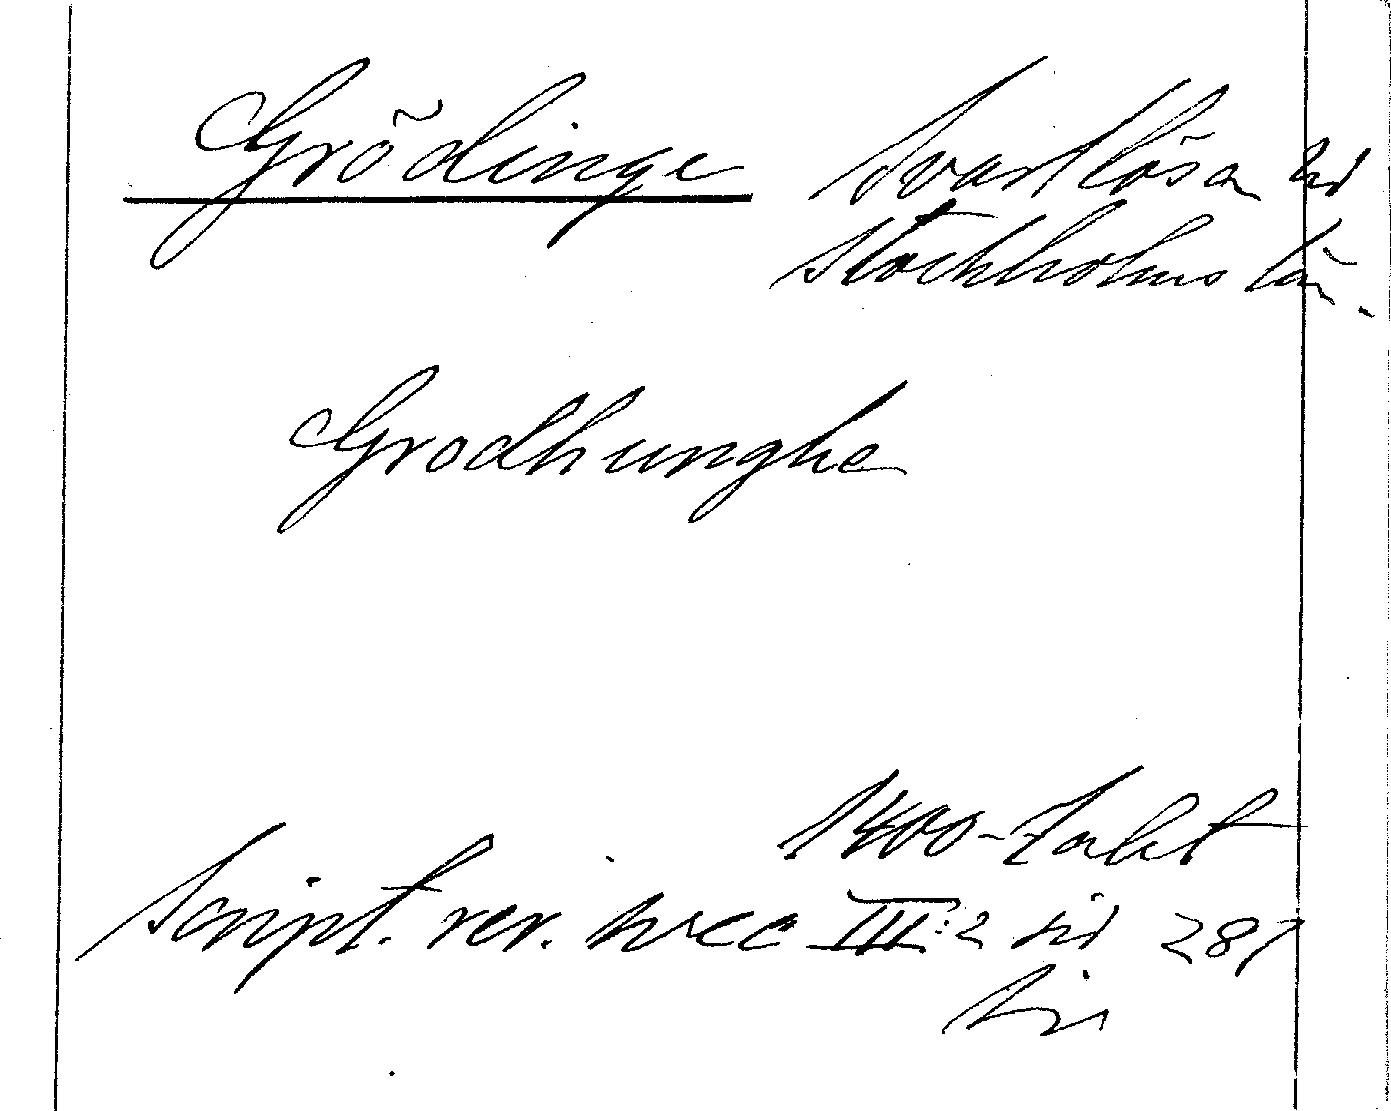 Grödinge Svartlösa hd
Stockholms län.
Grodhunghe
1400-talet
Script. rer. svec III:2 sid 287